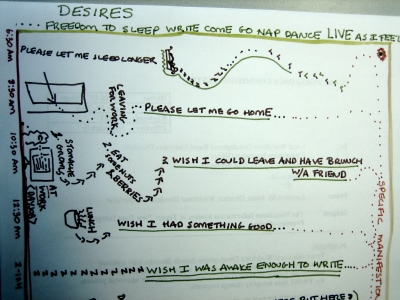 DESIRES
FREEDOM TO SLEEP WRITE COME GO NAP DANCE LIVE AS I FEEL
6:30 AM
PLEASE LET ME SLEEP LONGER
8:30 AM
LEAVING FOR WORK
PLEASE LET ME GO HOME...
10:30 AM
1. STOMACHE GROWLING
2. EAT DONUTS & BERRIES
3 WISH I COULD LEAVE AND HAVE BRUNCH
W/A FRIEND
AT WORK
12:30 PM
LUNCH
WISH I HAD SOMETHING GOOD...
SPECIFIC MANIFESTION
ZZZZZZZZZZZZ WISH I WAS AWAKE ENOUGH TO WRITE...
HERE?)